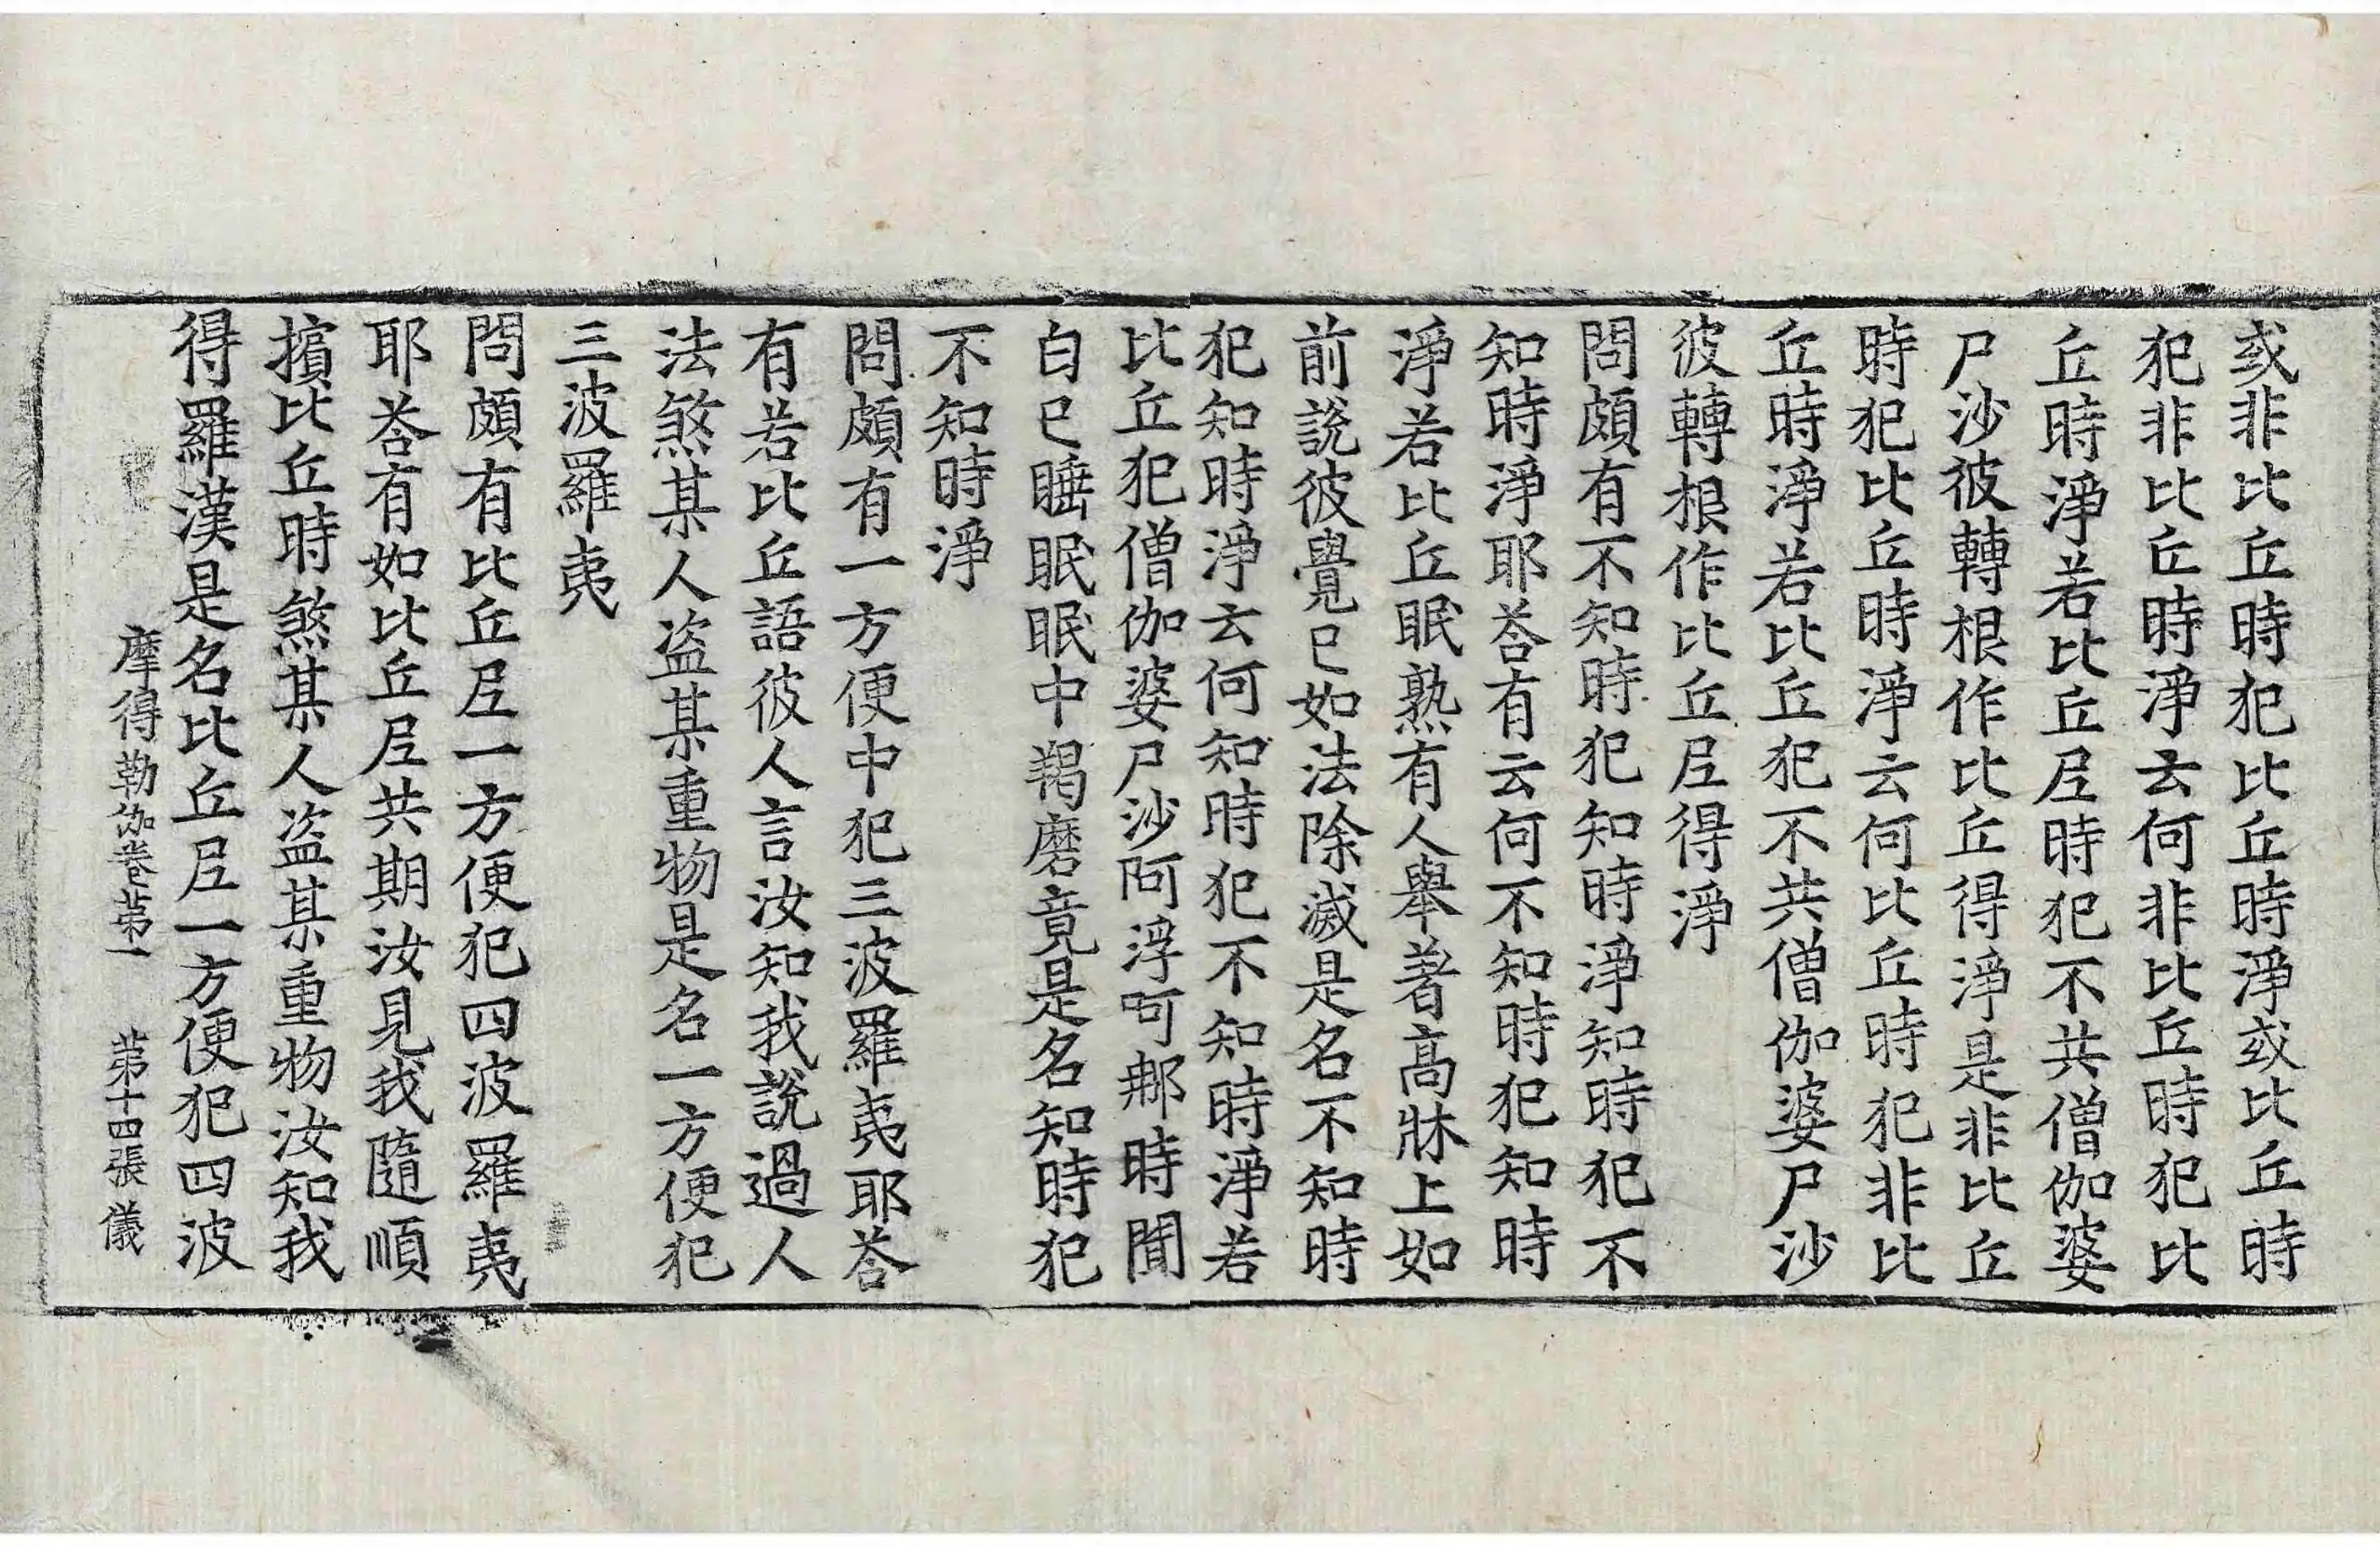 或非比丘時犯比丘時淨或比丘時
犯非比丘時淨云何非比丘時犯比
丘時淨若比丘尼時犯不共僧伽婆
尸沙彼轉根作比丘得淨是非比丘
時犯比丘時淨云何比丘時犯非比
丘時淨若比丘犯不共僧伽婆尸沙
彼轉根作比丘尼得淨
問頗有不知時犯知時淨知時犯不
知時淨耶荅有云何不知時犯知時
淨若比丘眠熟有人舉著高牀上如
前說彼覺已如法除滅是名不知時
犯知時淨云何知時犯不知時淨若
比丘犯僧伽婆尸沙阿浮呵那時聞
白已睡眠眠中羯磨竟是名知時犯
不知時淨
問頗有一方便中犯三波羅夷耶荅
有若比丘語彼人言汝知我說過人
法煞某人盗某重物是名一方便犯
三波羅夷
問頗有比丘尼一方便犯四波羅夷
耶荅有如比丘尼共期汝見我隨順
擯比丘時煞某人盗某重物汝知我
得羅漢是名比丘尼一方便犯四波
摩得勒伽卷第一 第十四張 儀